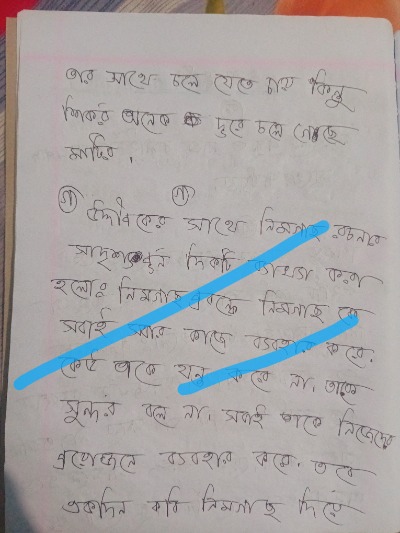 তার সাথে চলে যেতে চায় কিন্তু
শিকর অনেক দূরে চলে গেছে
মাটির।
গ গ
উদ্দীপকের সাথে নিমগাছ রচনার
সাদৃশ্যপূর্ন দিকটি ব্যাখ্যা করা
হলোঃ নিমগাছ প্রবন্ধে নিমগাছ কে
সবাই সবার কাজে ব্যবহার করে.
কেউ তাকে যত্ন করে না. তাকে
সুন্দর বলে না. সবাই তাকে নিজেদের
প্রয়োজনে ব্যবহার করে. তবে
একদিন কবি নিমগাছ দিয়ে